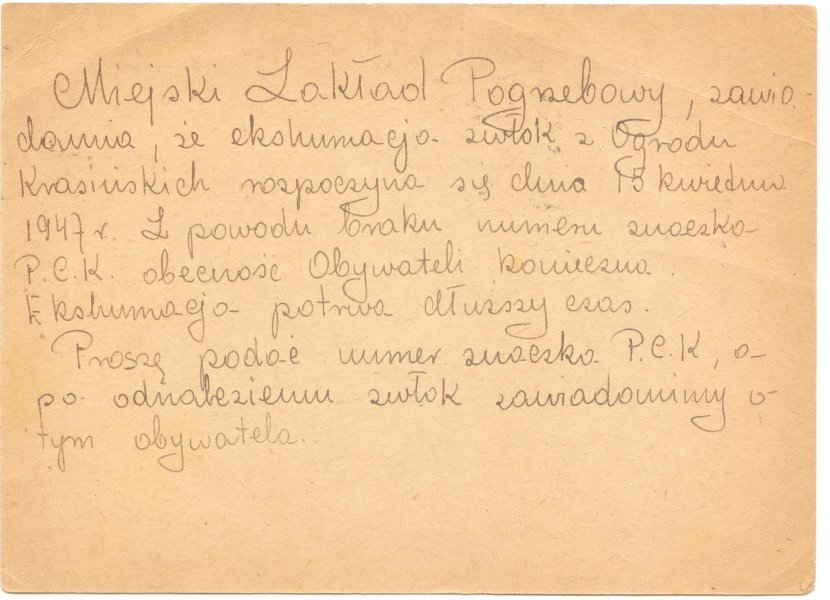 Miejski Zakład Pogrzebowy, zawia-
damia, że ekshumacja zwłok z Ogrodu
Krasińskich rozpoczyna się dnia 15 kwietnia
1947 r. Z powodu braku numeru znaczka
P.C.K. obecność Obywateli konieczna.
Ekshumacja potrwa dłuższy czas.
Proszę podać numer znaczka P.C.K, a-
po odnalezieniu zwłok zawiadomimy o-
tym obywatela.